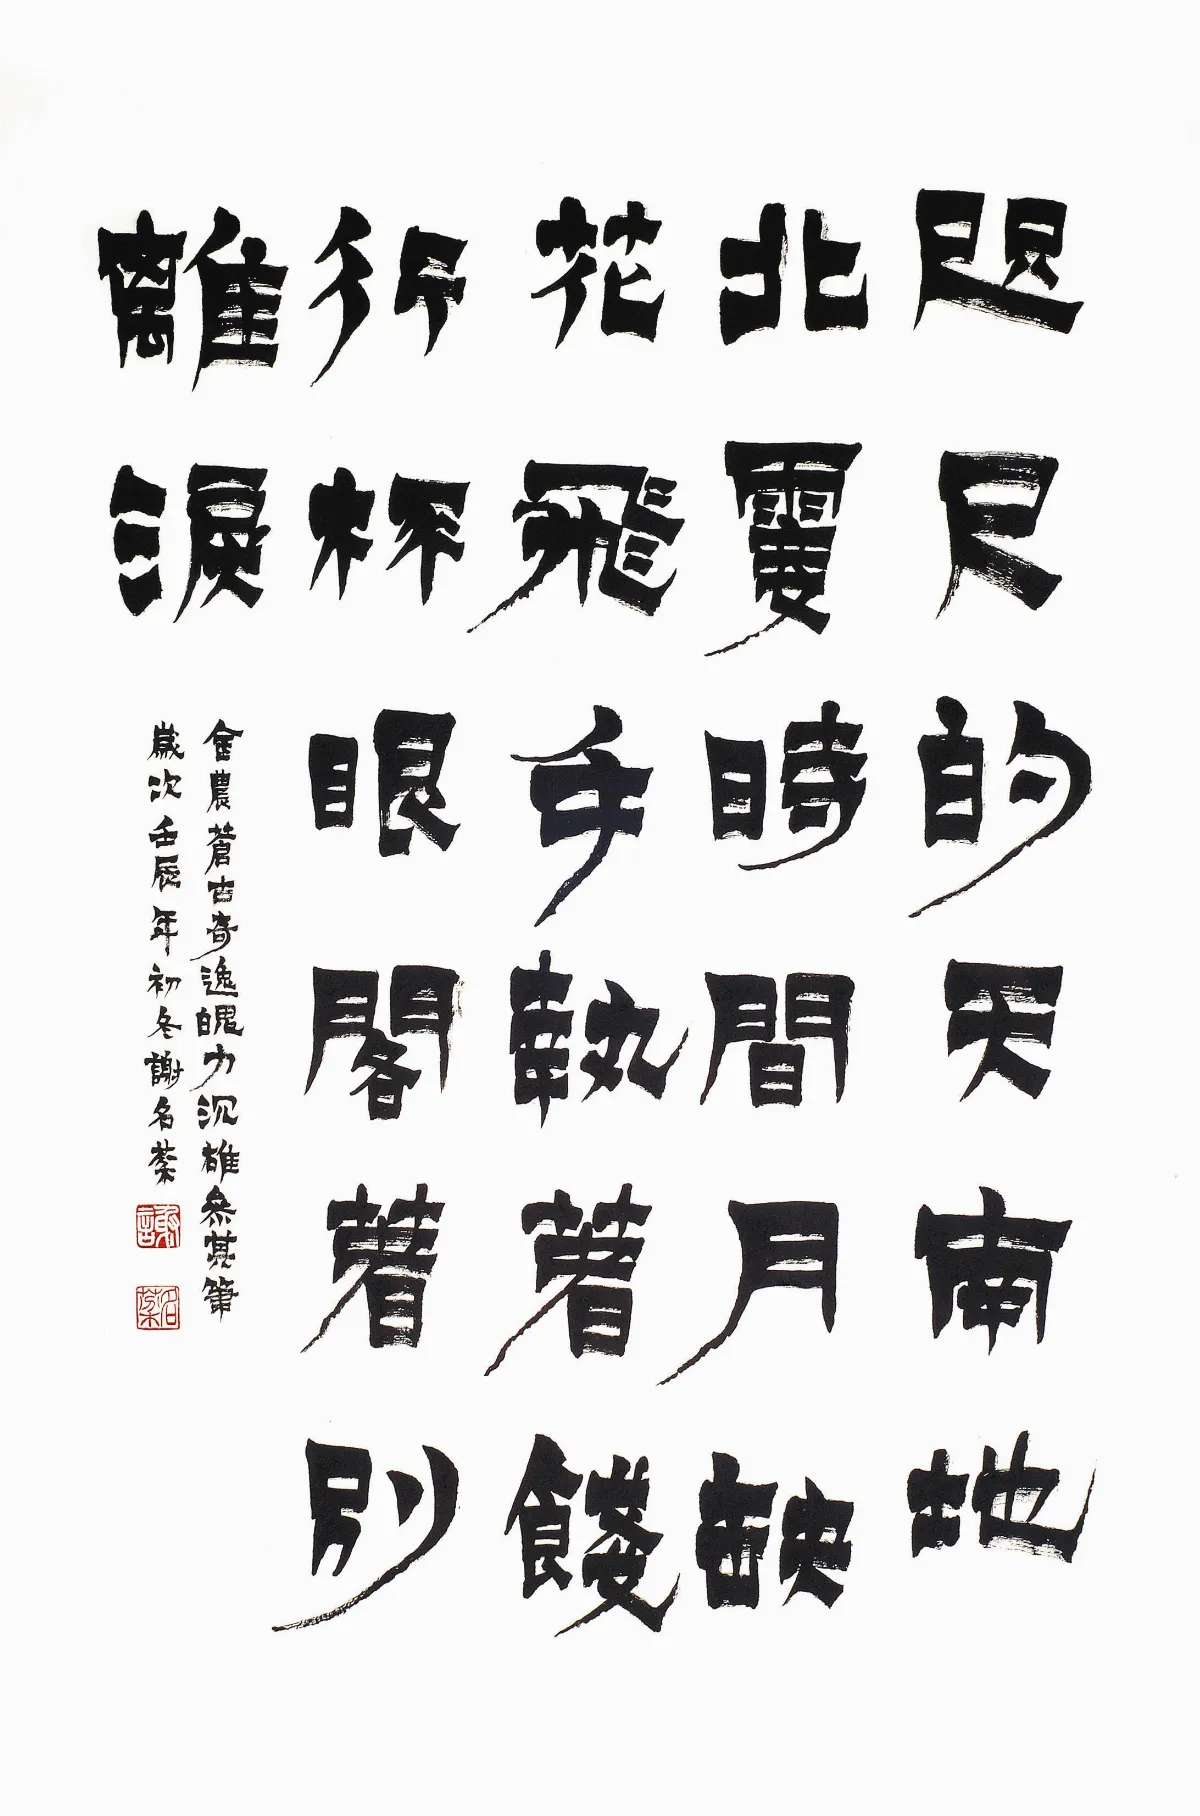 咫尺的天南地
北霎時間月缺
花飛手執著餞
行杯眼閣著別
離淚
金農蒼古奇逸魄力沉雄參其筆
歲次壬辰年初冬謝名棻
謝
名棻